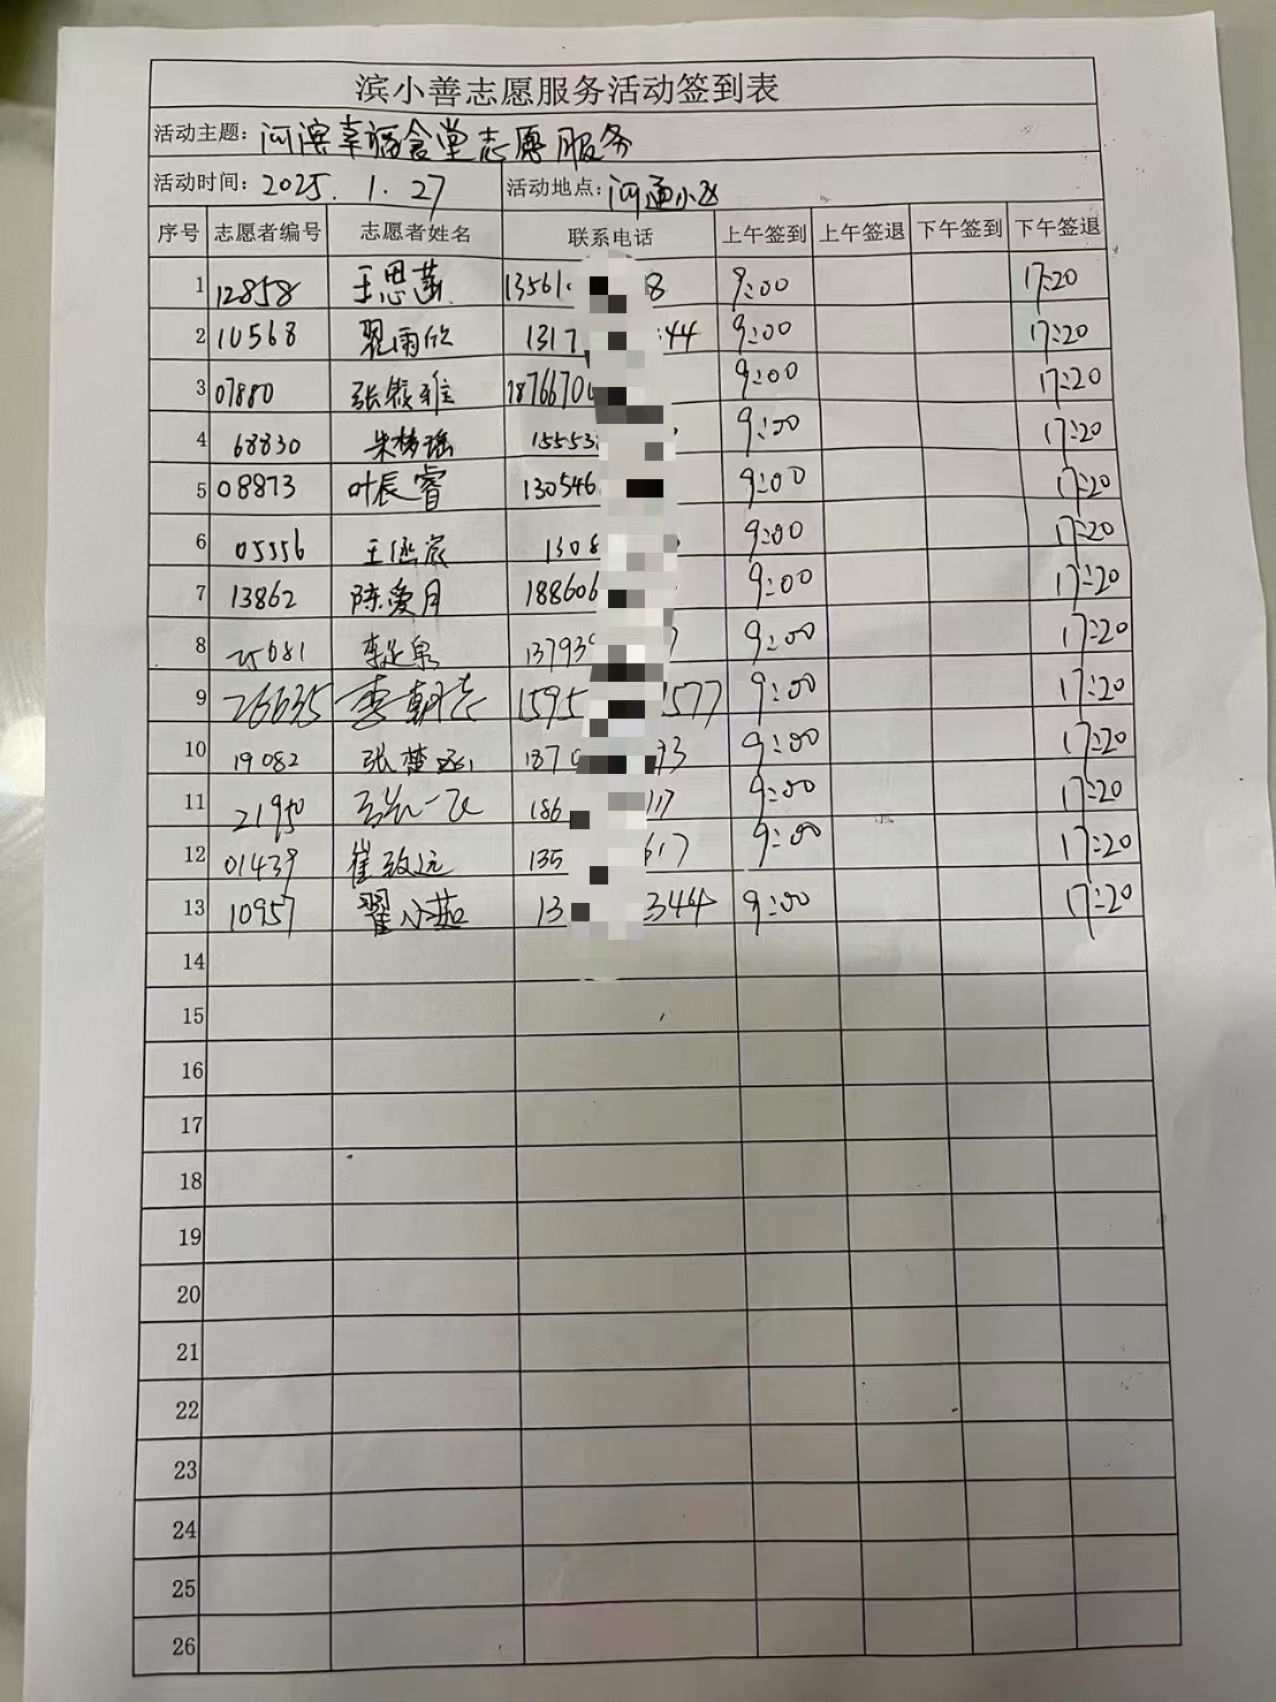 滨小善志愿服务活动签到表
活动主题：河滨幸福食堂志愿服务
活动时间：2025.1.27 活动地点：河通小区
序号 志愿者编号 志愿者姓名 联系电话 上午签到 上午签退 下午签到 下午签退
1 12858 王思 13561 8 9:00 17:20
2 10568 翟雨欣 1317 44 9:00 17:20
3 07880 张筱雅 1876670 9:00 17:20
4 68830 朱梦瑶 15553 9:00 17:20
5 08873 叶辰睿 130546 9:00 17:20
6 05556 王 1308 9:00 17:20
7 13862 陈爱月 188606 9:00 17:20
8 25681 李 泉 13793 9:00 17:20
9 26635 李朝 1595 1577 9:00 17:20
10 19082 张楚 1370 73 9:00 17:20
11 21950 一飞 186 117 9:00 17:20
12 01439 崔致远 135 617 9:00 17:20
13 10957 翟小茹 13 344 9:00 17:20
14
15
16
17
18
19
20
21
22
23
24
25
26